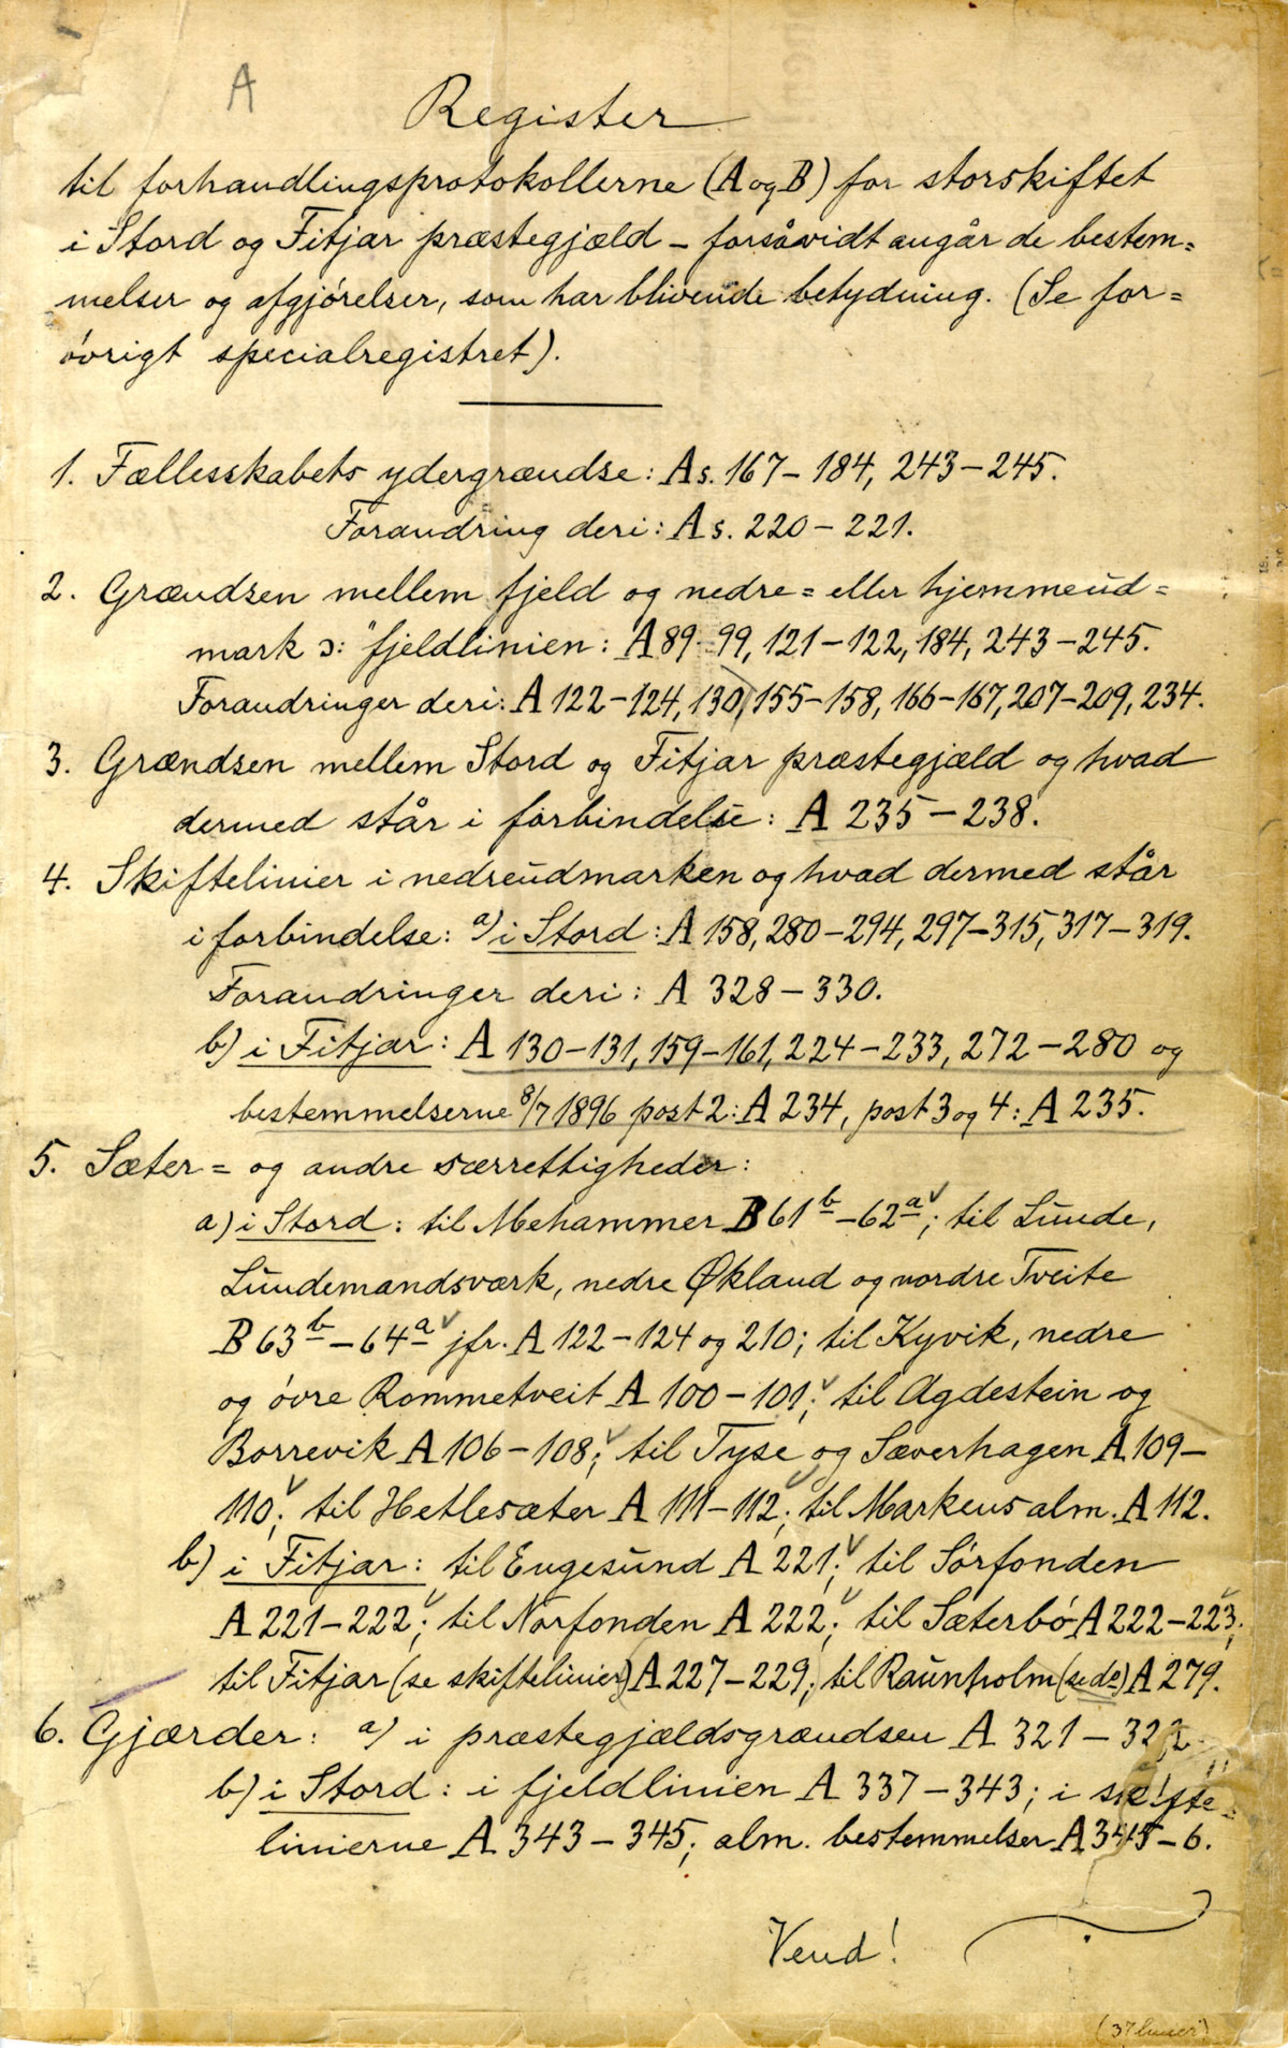 A
Register
til forhandlingsprotokollerne (A og B) for storskiftet
i Stord og Fitjar præstegjæld – forsåvidt angår de bestem=
melser og afgjórelser, som har blivende betydning. (Se for=
óvrigt specialregistret).
1. Fællesskabets ydergrændse: A s. 167 – 184, 243 – 245.
Forandring deri: A s. 220 – 221.
2. Grændsen mellem fjeld og nedre= eller hjemmeud=
mark ɔ: "fjeldlinien: A 89 - 99, 121 – 122, 184, 243 – 245.
Forandringer deri: A 122 – 124, 130, 155 – 158, 166 – 167, 207 – 209, 234.
3. Grændsen mellem Stord og Fitjar præstegjæld og hvad
dermed står i forbindelse: A 235 – 238.
4. Skiftelinier i nedreudmarken og hvad dermed står
i forbindelse: a) i Stord: A 158, 280 – 294, 297 – 315, 317 – 319.
Forandringer deri: A 328 – 330.
b) i Fitjar: A 130 – 131, 159 – 161, 224 – 233, 272 – 280 og
bestemmelserne 8/7 1896 post 2: A 234, post 3 og 4: A 235.
5. Sæter= og andre særrettigheder:
a) i Stord: til Mehammer B 61b – 62a; til Lunde,
Lundemandsværk, nedre Økland og nordre Tveite
B 63b – 64a jfr. A 122 – 124 og 210; til Kyvik, nedre
og óvre Rommetveit A 100 – 101; til Agdestein og
Borrevik A 106 – 108; til Tyse og Sæverhagen A 109 –
110; til Hetlesæter A 111 – 112; til Markens alm. A 112.
b) i Fitjar: til Engesund A 221; til Sórfonden
A 221 – 222; til Norfonden A 222; til Sæterbó A 222 – 223;
til Fitjar (se skiftelinier) A 227 – 229; til Raunholm (se do) A 279.
6. Gjærder: a) i præstegjældsgrændsen A 321 – 322
b) i Stord: i fjeldlinien A 337 – 343; i skifte=
linierne A 343 – 345; alm. bestemmelser A 345 – 6.
Vend!
(37 linier)